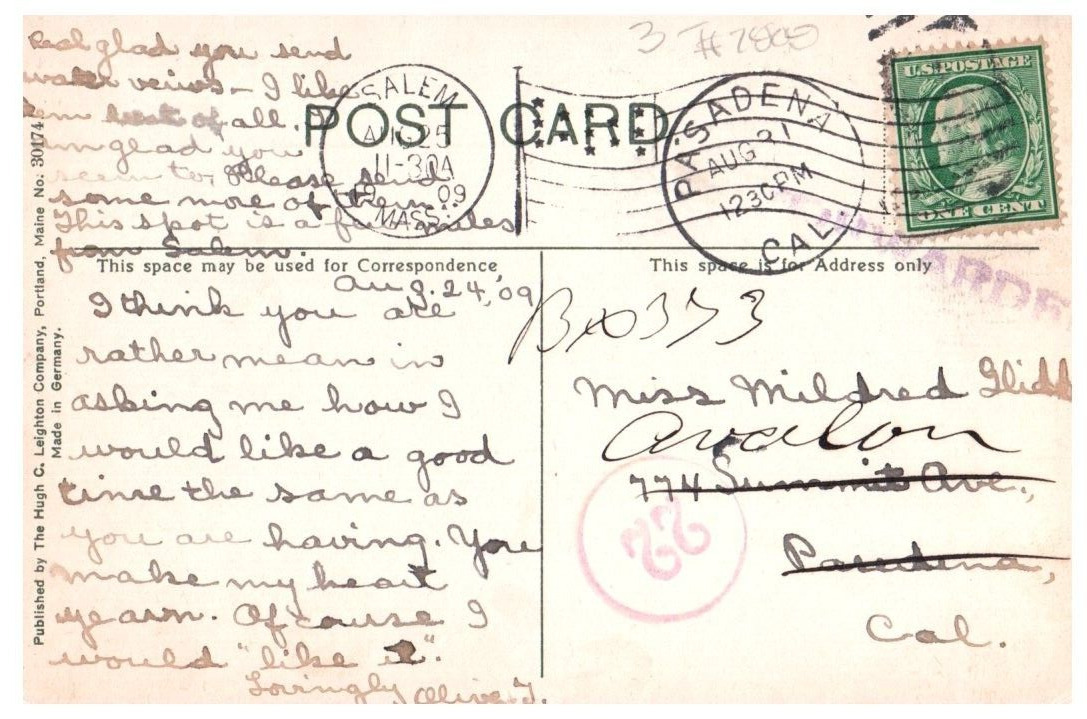 Real glad you send
water veiws - I like
em best of all.
um glad you
seem to. Please send
some more of them.
This spot is a few miles
from Salem.
POST CARD
SALEM
AUG 25
11-30A
1909
MASS.
PASADENA
AUG 31
1230PM
CAL.
U.S. POSTAGE
ONE CENT
3 #7800
This space may be used for Correspondence
This space is for Address only
Aug. 24, '09
I think you are
rather mean in
asking me how I
would like a good
time the same as
you are having. You
make my heart
yearn. Of cause I
would "like it".
Lovingly Olive. T.
Box 373
Miss Mildred Glidd
Avalon
774 Summit Ave.,
Pasadena,
Cal.
22
Published by The Hugh C. Leighton Company, Portland, Maine No: 30174.
Made in Germany.